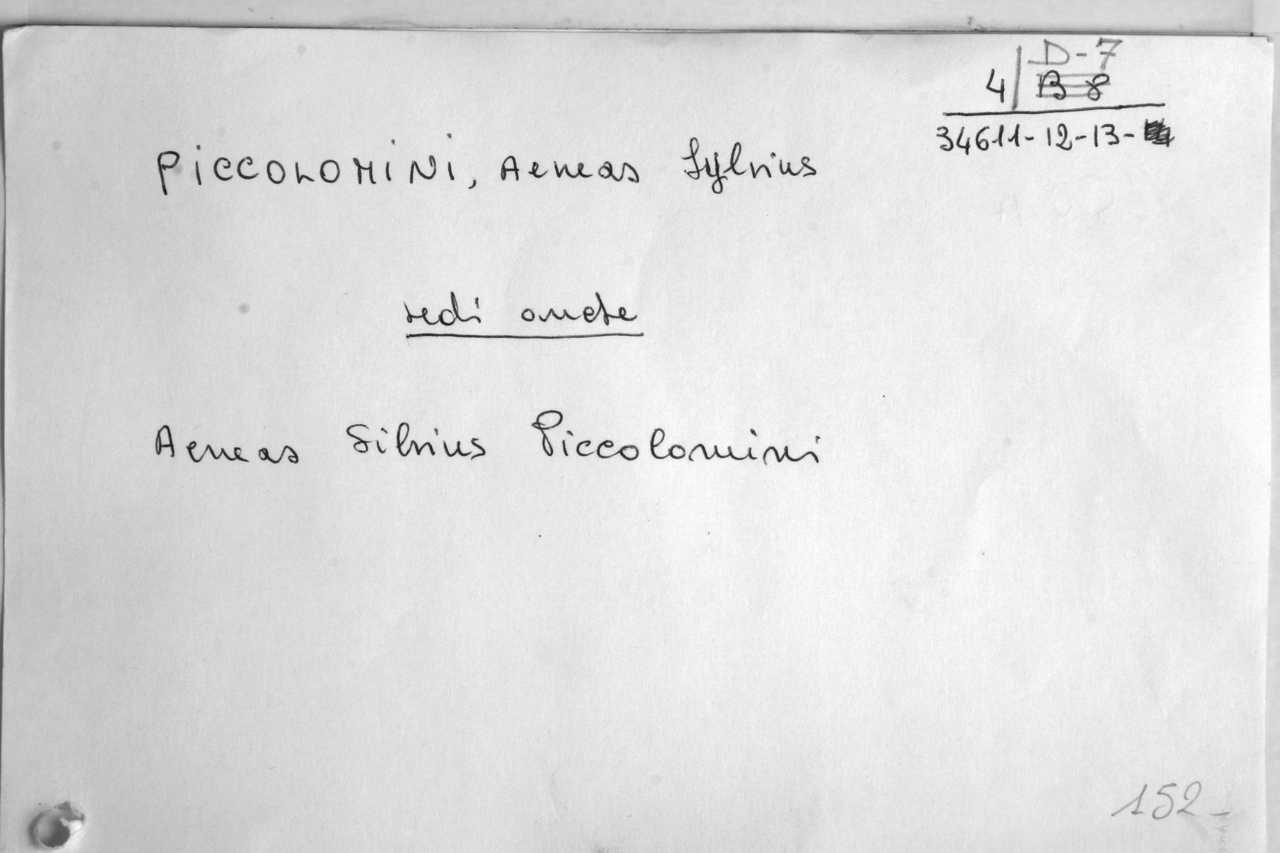 D-7
4 B 8
34611-12-13-
PiCCOLOMiNi, Aeneas Sylvius
vedi anche
Aeneas Silvius Piccolomini
152-